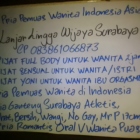 Pria Pemuas Wanita Indonesia Asi
Lanjar Angga Wijaya Surabaya
CP 083861066873
PIJAT FULL BODY UNTUK WANITA
PIJAT SENSUAL UNTUK WANITA/ISTRI
PIJAT YONI UNTUK WANITA/IBU ORGASME
Pria Pemuas Wanita di Indonesia
Ganteng Surabaya Atletis
Bersih, Wangi, No Gay, Mr P
Pria Romantis Oral V Wanita Puas